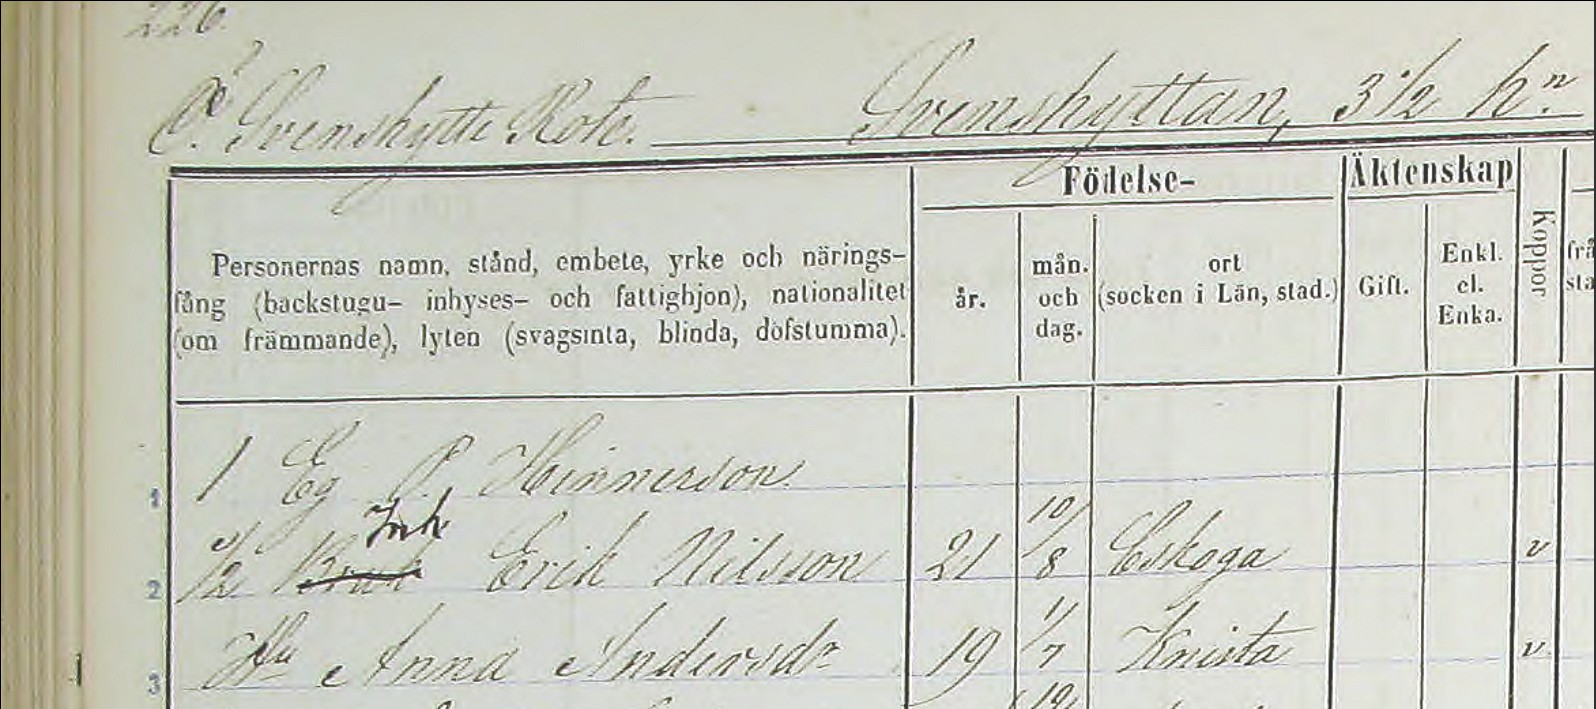 226.
Ö. Svenshytte Rote. Svenshyttan, 3 1/2 hn.
Födelse- Äktenskap
Personernas namn, stånd, embete, yrke och närings-
fång (backstugu- inhyses- och fattighjon), nationalitet
(om främmande), lyten (svagsinta, blinda, dofstumma).
år.
mån.
och
dag.
ort
(socken i Län, stad.)
Gift.
Enkl.
el.
Enka.
Koppor
frå
sta
1 1 Eg P. Hinnerson
Inh
2 1/2 Bruk Erik Nilsson 21 10/8 Eskoga v
3 Hu Anna Andersdr 19 1/7 Knista v
19